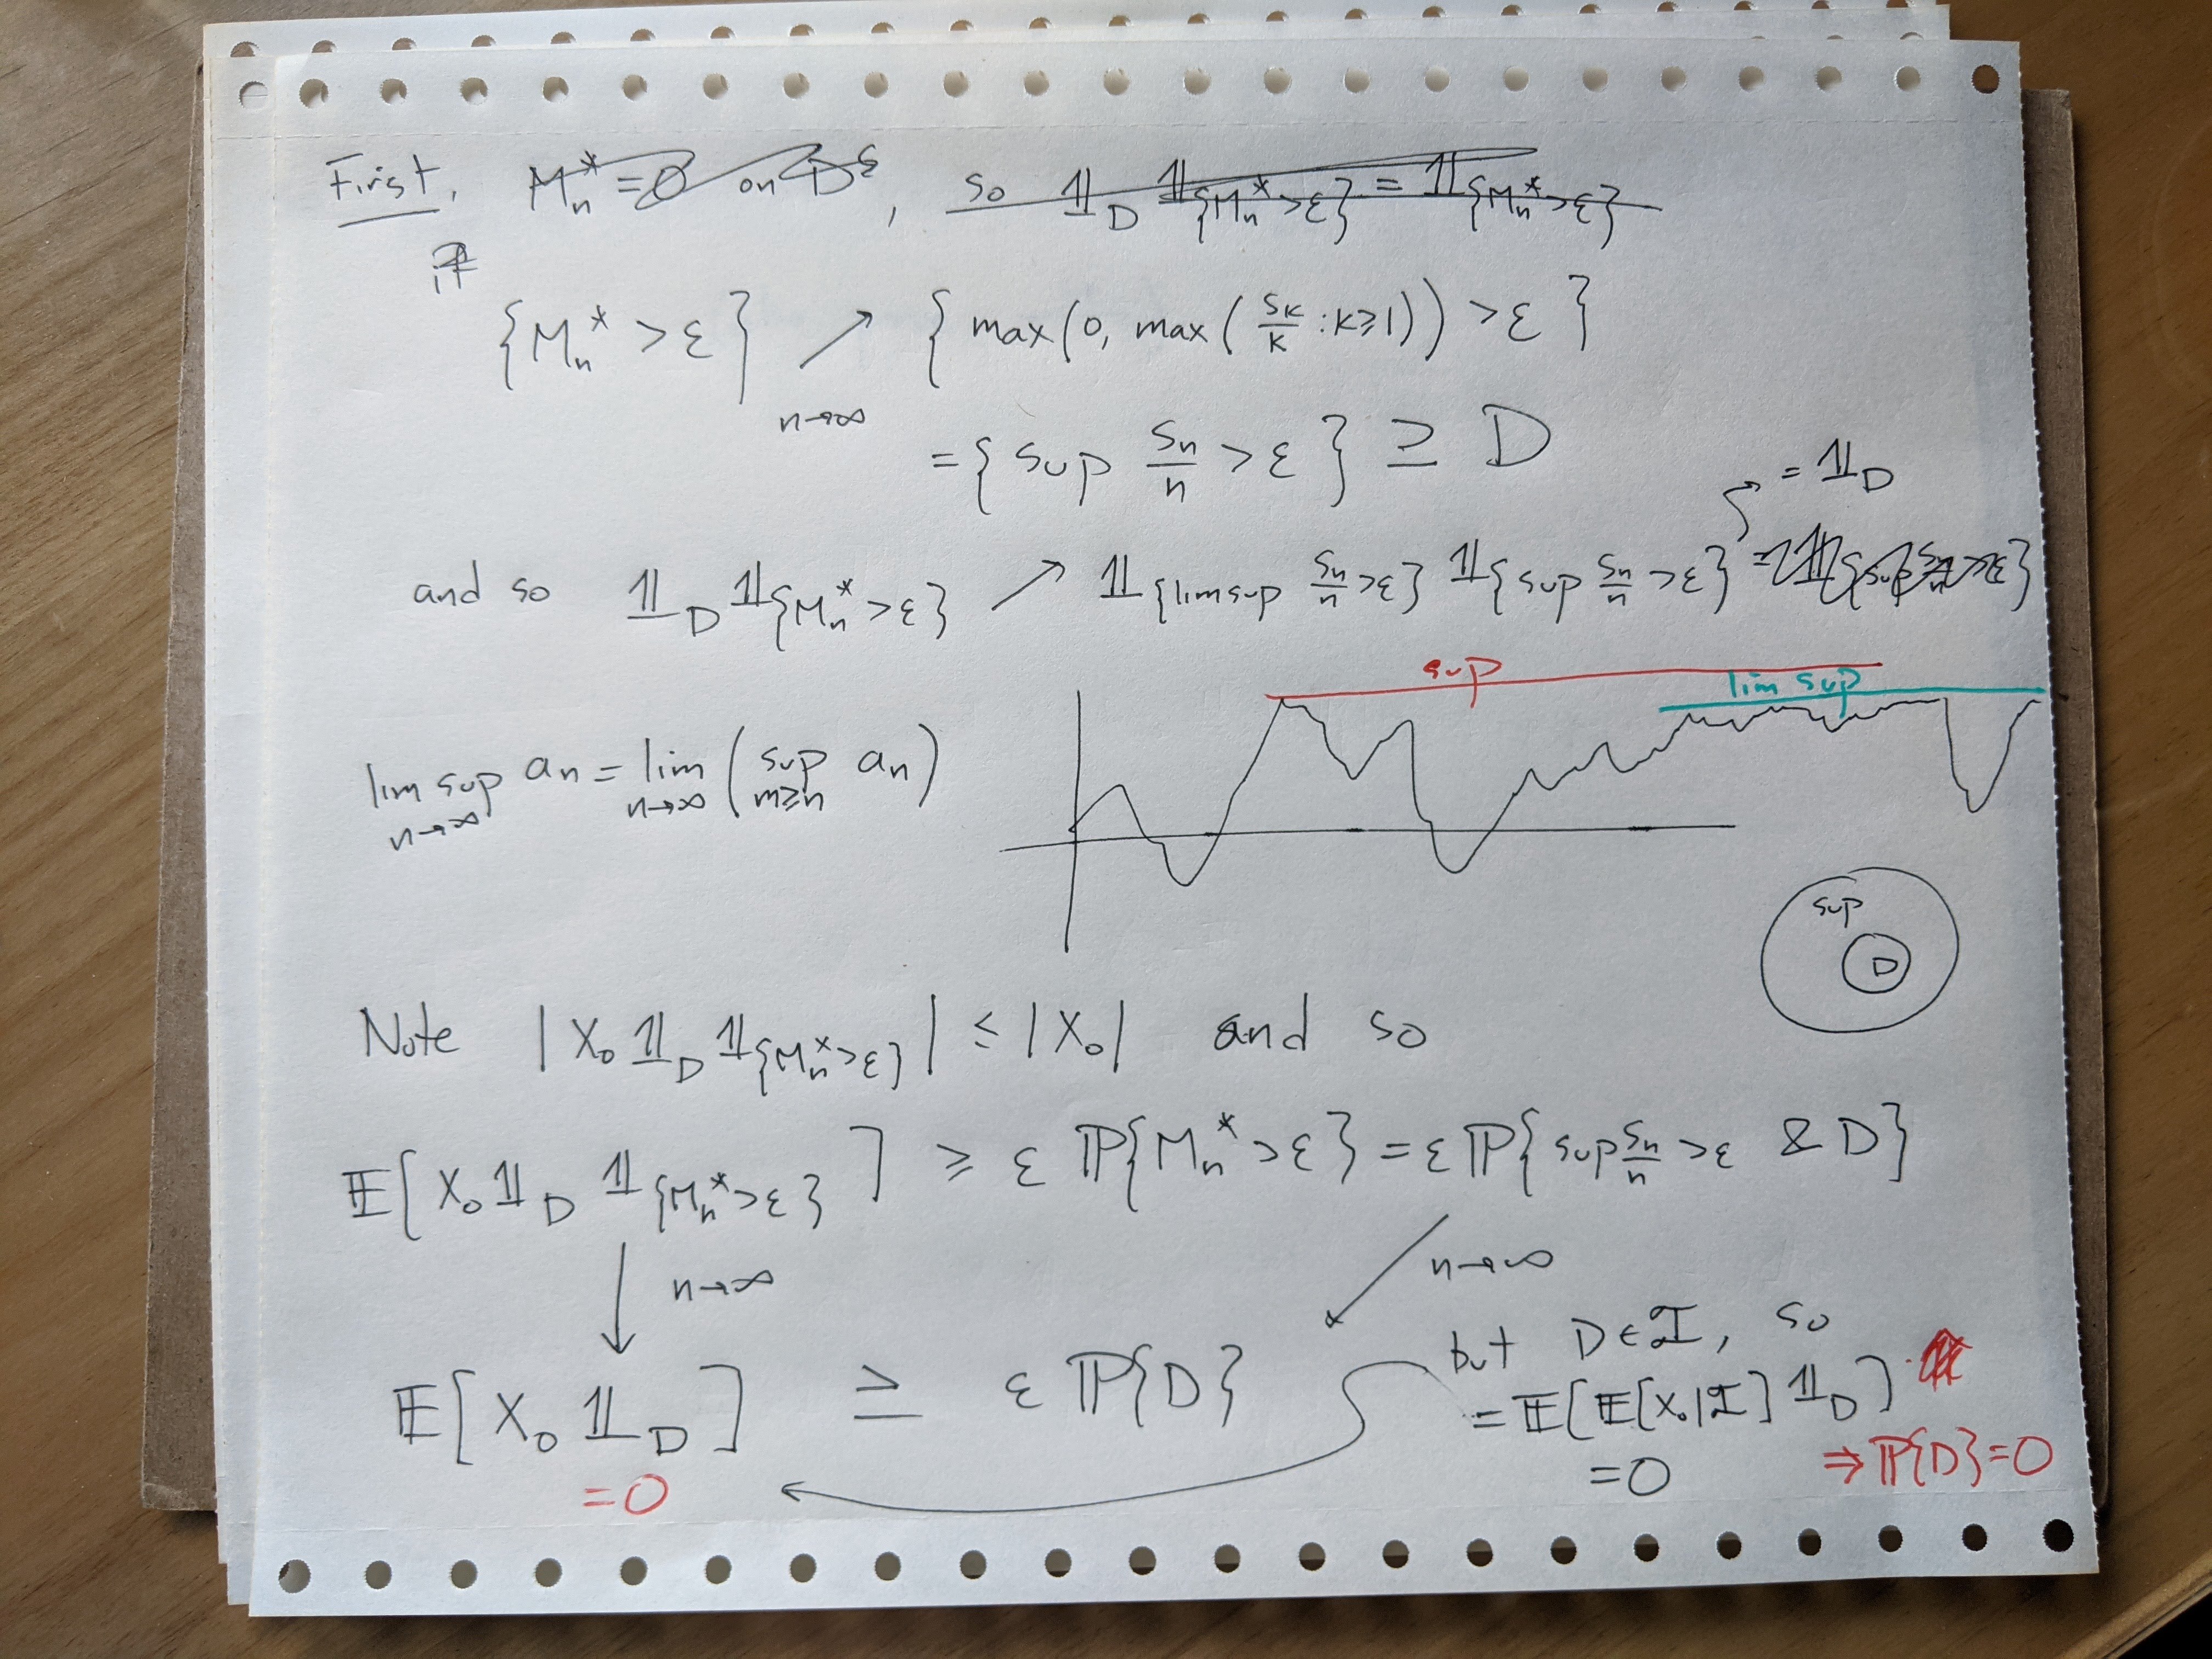 First, M_n^* = 0 on D^c, so 𝟙_D 𝟙_{M_n^* > ε} = 𝟙_{M_n^* > ε}
if
{M_n^* > ε} ↗ {max(0, max(S_k/k : k ≥ 1)) > ε}
n→∞
= {sup S_n/n > ε} ⊇ D
= 𝟙_D
and so 𝟙_D 𝟙_{M_n^* > ε} ↗ 𝟙_{limsup S_n/n > ε} 𝟙_{sup S_n/n > ε} = 𝟙_{sup S_n/n > ε}
sup
lim sup
lim sup_{n→∞} a_n = lim_{n→∞} (sup_{m≥n} a_n)
sup
D
Note |X_0 𝟙_D 𝟙_{M_n^* > ε}| ≤ |X_0| and so
𝔼[X_0 𝟙_D 𝟙_{M_n^* > ε}] ≥ ε ℙ{M_n^* > ε} = ε ℙ{sup S_n/n > ε & D}
↓ n→∞ ↙ n→∞
but D ∈ ℐ, so
𝔼[X_0 𝟙_D] ≥ ε ℙ{D}
= 𝔼[𝔼[X_0|ℐ] 𝟙_D]
= 0
= 0
⇒ ℙ{D} = 0